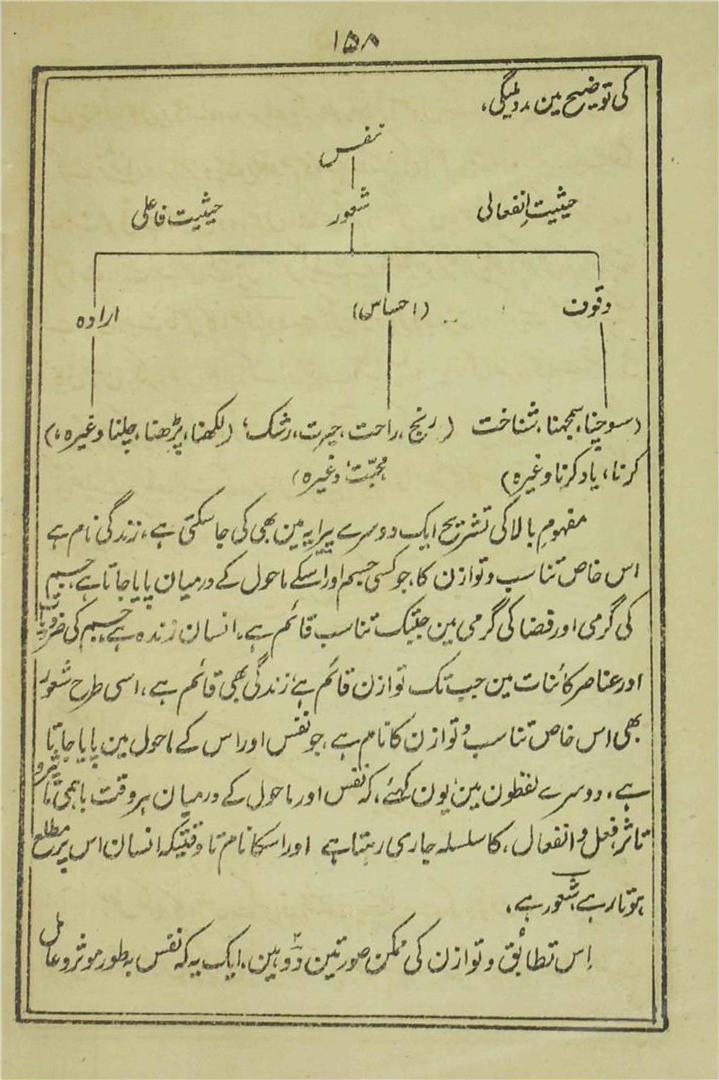 ۱۵۸
کی توضیح مین مدد ملیگی،
نفس
حیثیت انفعالی شعور حیثیت فاعلی
وقوف (احساس) ارادہ
(سوچنا، سمجھنا، شناخت (رنج، راحت، حیرت، رشک، (لکھنا، پڑھنا، چلنا وغیرہ،)
کرنا، یاد کرنا وغیرہ) محبّت وغیرہ)
مفہوم بالا کی تشریح ایک دوسرے پیرایہ مین بھی کی جا سکتی ہے، زندگی نام ہے
اس خاص تناسب و توازن کا، جو کسی جسم اور اسکے ماحول کے درمیان پایا جاتا ہے، جسم
کی گرمی اور فضا کی گرمی مین جبتک تناسب قائم ہے، انسان زندہ ہے، جسم کی ضروریات
اور عناصر کائنات مین جب تک توازن قائم ہے زندگی بھی قائم ہے، اسی طرح شعور
بھی اس خاص تناسب و توازن کا نام ہے، جو نفس اور اس کے ماحول مین پایا جاتا
ہے، دوسرے لفظون مین یون کہئے، کہ نفس اور ماحول کے درمیان ہر وقت باہمی تاثیر و
تاثر، فعل و انفعال، کا سلسلہ جاری رہتا ہے اور اسکا نام تاوقتیکہ انسان اس پر مطلع
ہوتا رہے، شعور ہے،
اِس تطابق و توازن کی ممکن صورتین دو ہین، ایک یہ کہ نفس بطور موثر و عامل